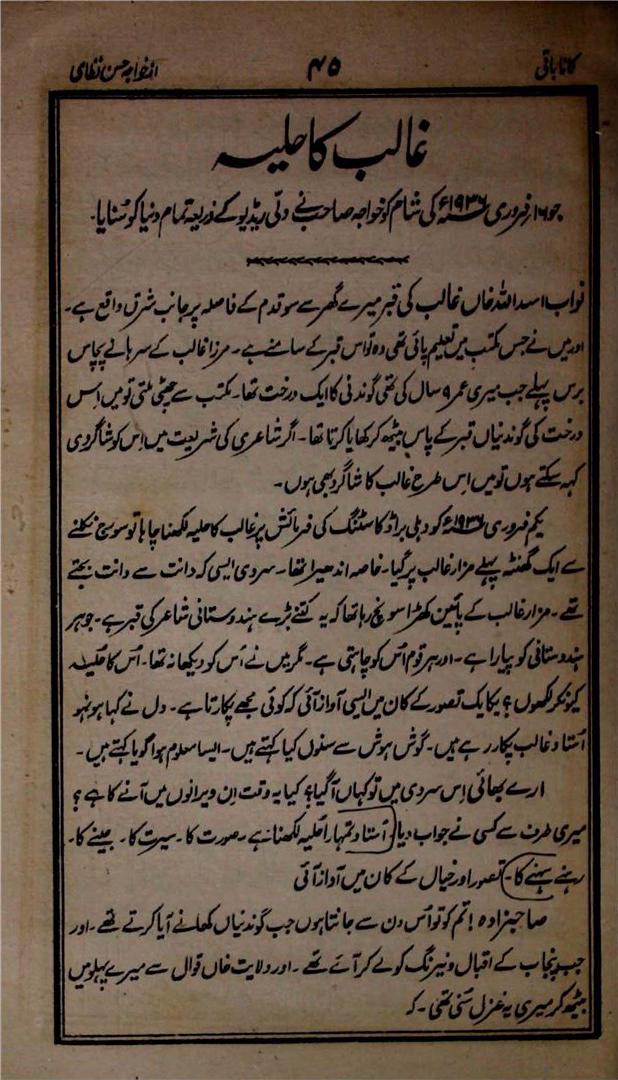 کانا باتی ۴۵ از خواجہ حسن نظامی
غالب کا حلیہ
جو ۱۶ فروری ۱۹۳۶ء کی شام کو خواجہ صاحب نے دلّی ریڈیو کے ذریعہ تمام دنیا کو سُنایا۔
نواب اسد اللہ خاں غالب کی قبر میرے گھر سے سو قدم کے فاصلہ پر جانب شرق واقع ہے۔
اور میں نے جس مکتب میں تعلیم پائی تھی وہ تو اس قبر کے سامنے ہے۔ مرزا غالب کے سرہانے پچاس
برس پہلے جب میری عمر ۹ سال کی تھی گوندنی کا ایک درخت تھا۔ مکتب سے چھٹی ملتی تو میں اس
درخت کی گوندنیاں قبر کے پاس بیٹھ کر کھایا کرتا تھا۔ اگر شاعری کی شریعت میں اس کو شاگردی
کہہ سکتے ہوں تو میں اس طرح غالب کا شاگرد بھی ہوں۔
یکم فروری ۱۹۳۶ء کو دہلی براڈکاسٹنگ کی فرمائش پر غالب کا حلیہ لکھنا چاہا تو سورج نکلنے
سے ایک گھنٹہ پہلے مزار غالب پر گیا۔ خاصہ اندھیرا تھا۔ سردی ایسی کہ دانت سے دانت بجتے
تھے۔ مزار غالب کے پائین کھڑا سونچ رہا تھا کہ یہ کتنے بڑے ہندوستانی شاعر کی قبر ہے۔ جو ہر
ہندوستانی کو پیارا ہے۔ اور ہر قوم اس کو چاہتی ہے۔ مگر میں نے اُس کو دیکھا نہ تھا۔ اُس کا حُلیہ
کیونکر لکھوں؟ یکایک تصور کے کان میں ایسی آواز آئی کہ کوئی مجھے پکارتا ہے۔ دل نے کہا ہو نہو
اُستاد غالب پکار رہے ہیں۔ گوش ہوش سے سنوں کیا کہتے ہیں۔ ایسا معلوم ہوا گویا کہتے ہیں۔
ارے بھائی اِس سردی میں تو کہاں آگیا؟ کیا یہ وقت اِن ویرانوں میں آنے کا ہے؟
میری طرف سے کسی نے جواب دیا۔ اُستاد تمہارا حلیہ لکھنا ہے۔ صورت کا۔ سیرت کا۔ جینے کا۔
رہنے سہنے کا۔ تصور اور خیال کے کان میں آواز آئی
صاحبزادہ! تم کو تو اُس دن سے جانتا ہوں جب گوندنیاں کھانے آیا کرتے تھے۔ اور
جب پنجاب کے اقبال و نیرنگ کو لے کر آئے تھے۔ اور ولایت خاں قوال سے میرے پہلو میں
بیٹھ کر میری یہ غزل سُنی تھی۔ کہ